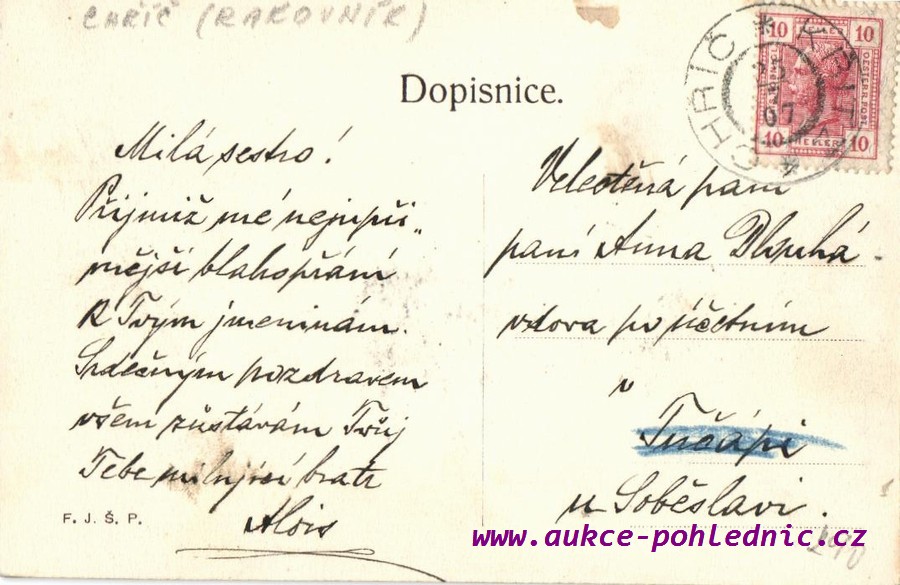 CHŘÍČ (RAKOVNÍK)
Dopisnice.
10 10
10 10
CHŘÍČ * KŘITZ *
07
Milá sestro!
Přijmiž mé nejupří„
mější blahopřání
k Tvým jmeninám.
Srdečným pozdravem
všem zůstávám Tvůj
Tebe milující bratr
Alois
F. J. Š. P.
Velectěná paní
paní Anna Dlouhá
vdova po účetním
v
Tučápi
u Soběslavi.
www.aukce-pohlednic.cz